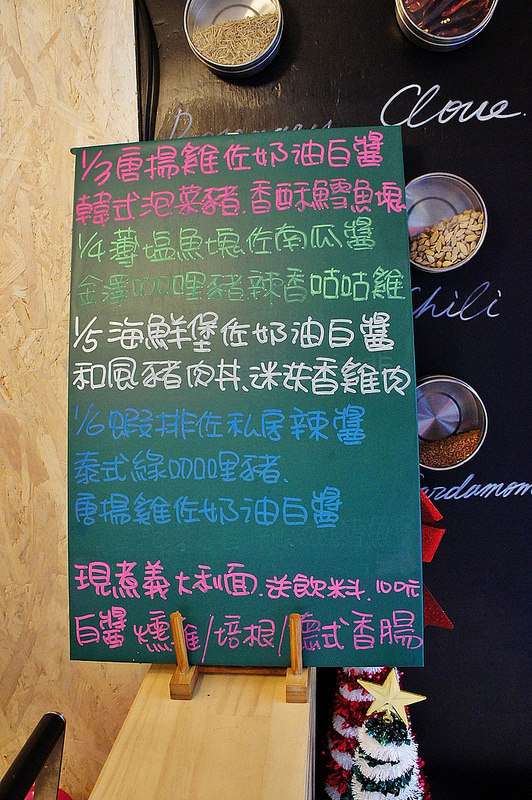 Clove.
Rosemary
1/3唐揚雞佐奶油白醬
韓式泡菜豬.香酥鱈魚塊
1/4薄塩魚塊佐南瓜醬
金澤咖哩豬.辣香咕咕雞
Chili
1/5海鮮堡佐奶油白醬
和風豬肉丼.迷迭香雞肉
1/6蝦排佐私房辣醬
泰式綠咖哩豬.
Cardamom
唐揚雞佐奶油白醬
現煮義大利面.送飲料.100元
白醬燻雞/培根/德式香腸